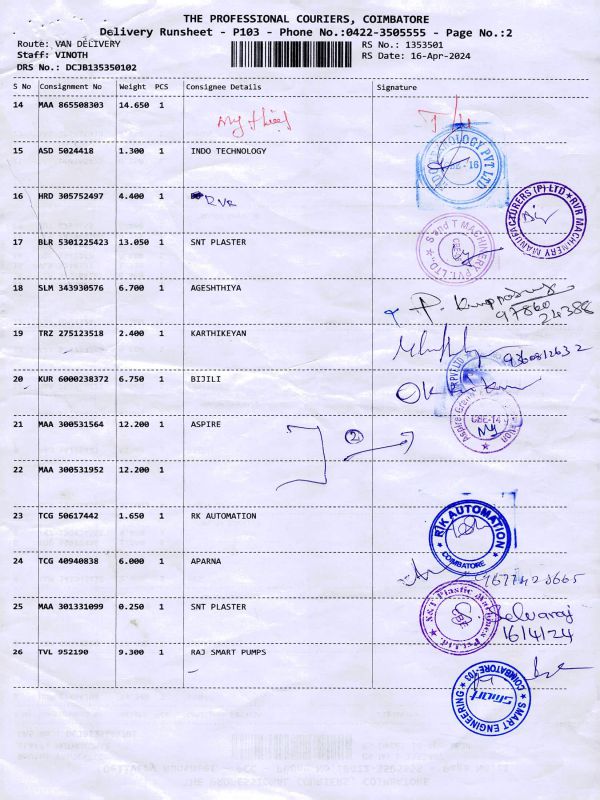 THE PROFESSIONAL COURIERS, COIMBATORE
Delivery Runsheet - P103 - Phone No.:0422-3505555 - Page No.:2
Route: VAN DELIVERY
RS No.: 1353501
Staff: VINOTH
RS Date: 16-Apr-2024
DRS No.: DCJB135350102
S No Consignment No Weight PCS Consignee Details Signature
14 MAA 865508303 14.650 1
15 ASD 5024418 1.300 1 INDO TECHNOLOGY
16 HRD 305752497 4.400 1 RVR
RVR MACHINERY MANUFACTURERS (P) LTD
17 BLR 5301225423 13.050 1 SNT PLASTER
S and T MACHINERY PVT. LTD.
18 SLM 343930576 6.700 1 AGESHTHIYA
97860
24388
19 TRZ 275123518 2.400 1 KARTHIKEYAN
9360812632
20 KUR 6000238372 6.750 1 BIJILI
21 MAA 300531564 12.200 1 ASPIRE
2
22 MAA 300531952 12.200 1
23 TCG 50617442 1.650 1 RK AUTOMATION
RK AUTOMATION
COIMBATORE
24 TCG 40940838 6.000 1 APARNA
9677428665
25 MAA 301331099 0.250 1 SNT PLASTER
S&T Plastic Machines Pvt Ltd
Selvaraj
16/4/24
26 TVL 952190 9.300 1 RAJ SMART PUMPS
SMART ENGINEERING
COIMBATORE-103
Smart